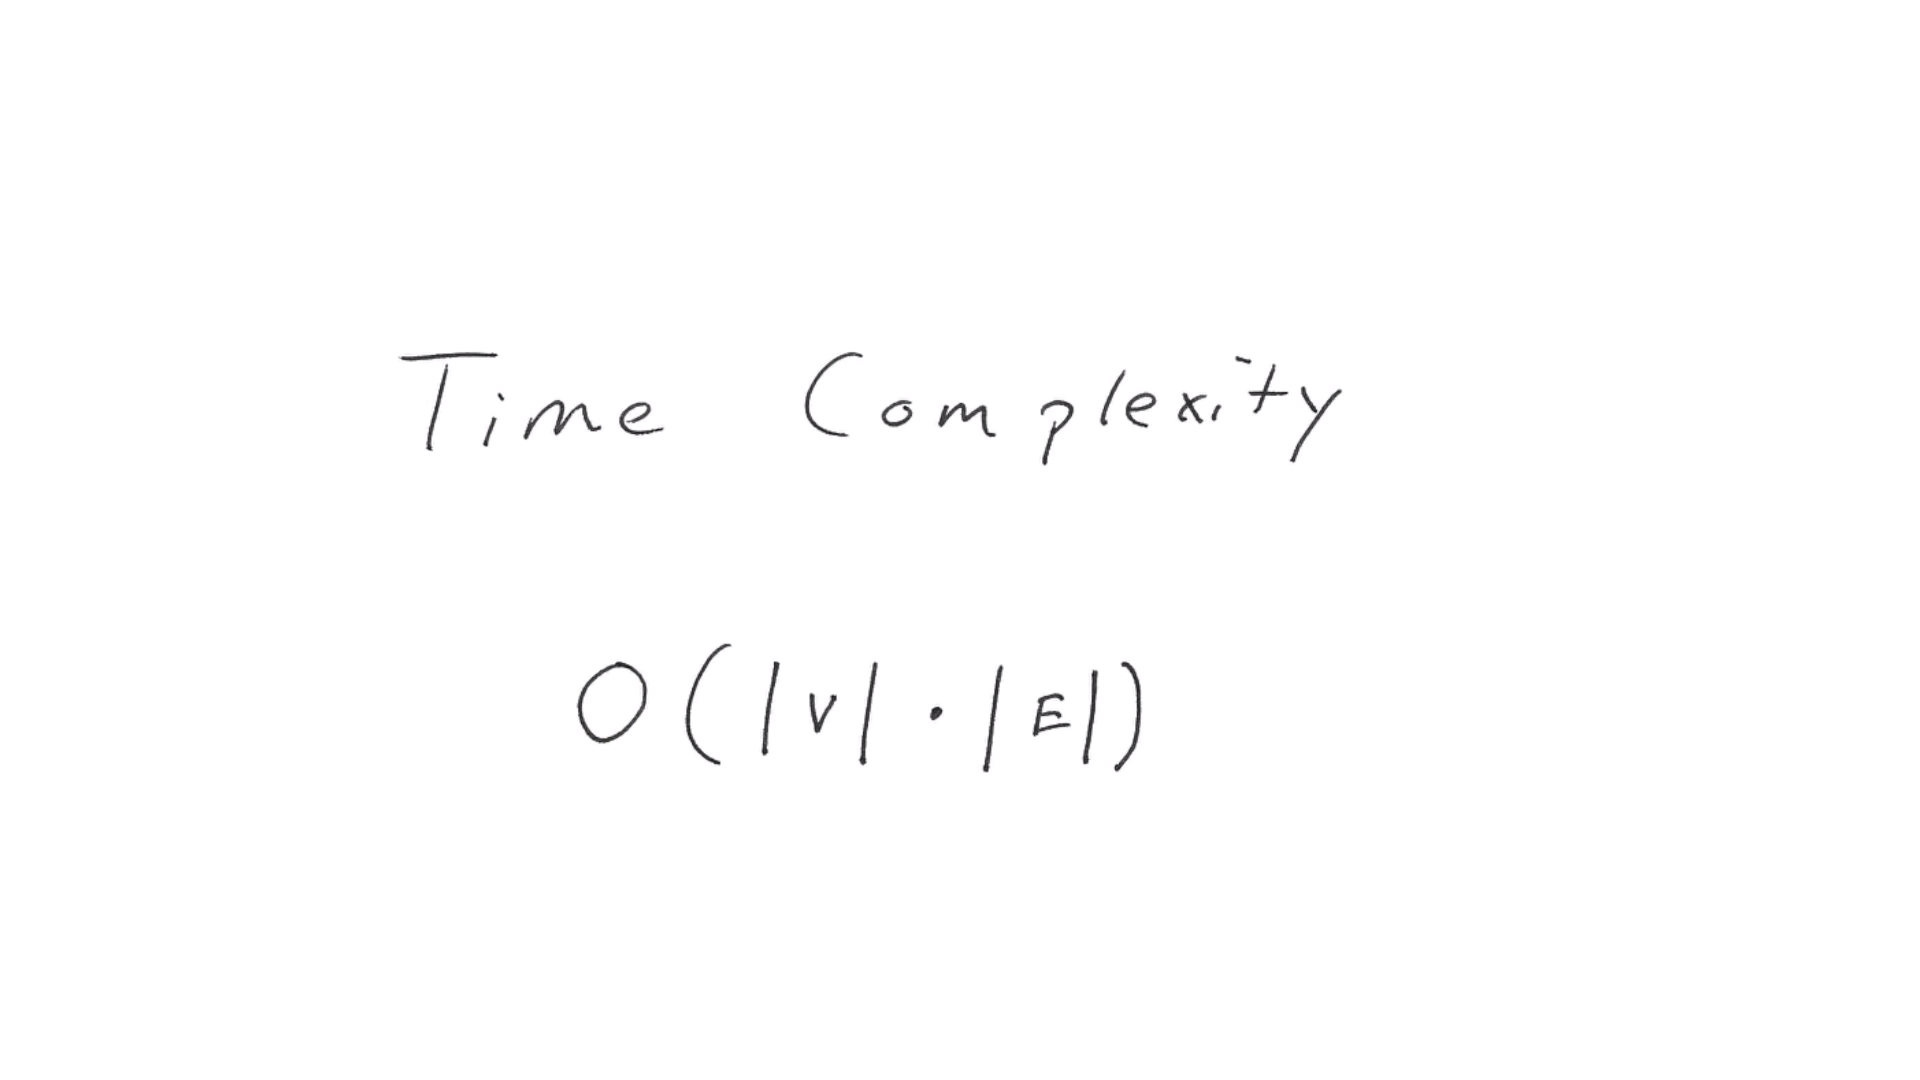 Time Complexity
O(|V| · |E|)